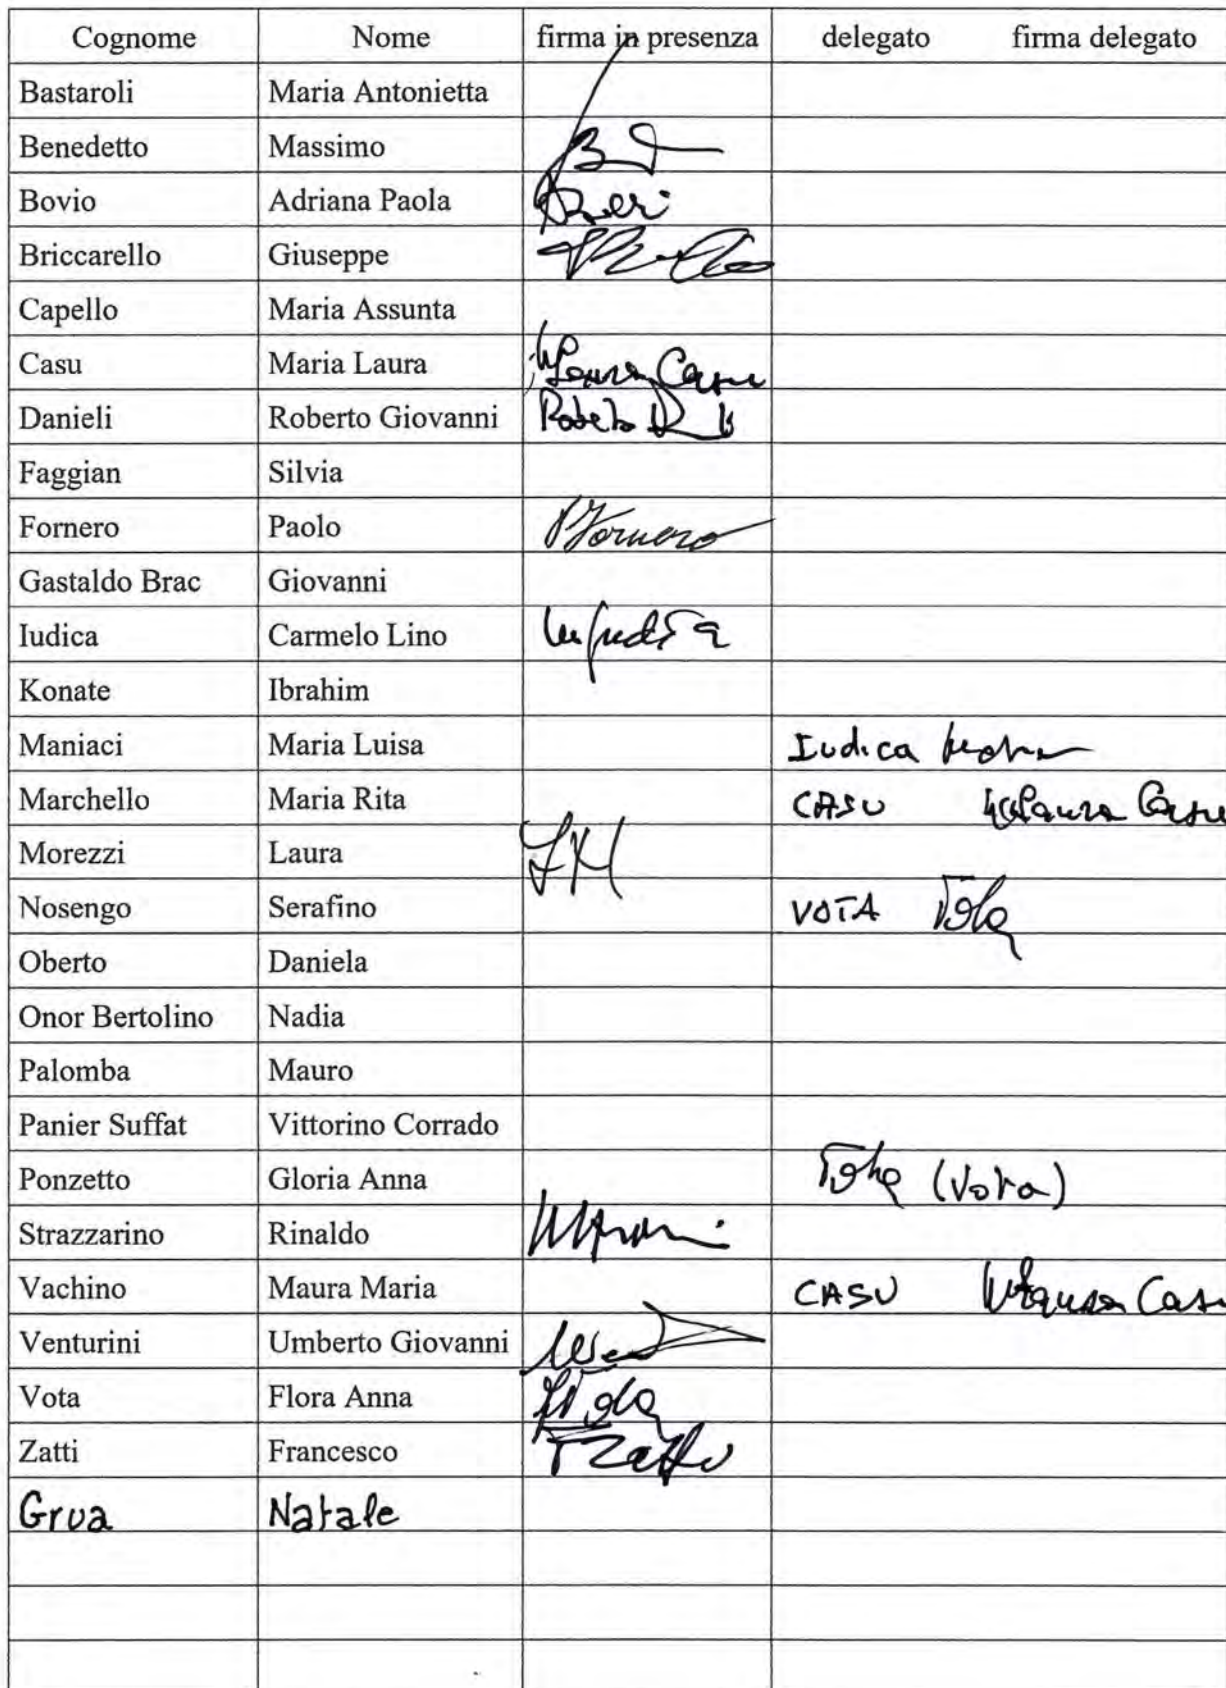 Cognome Nome firma in presenza delegato firma delegato
Bastaroli Maria Antonietta
Benedetto Massimo
Bovio Adriana Paola
Briccarello Giuseppe
Capello Maria Assunta
Casu Maria Laura Laura Casu
Danieli Roberto Giovanni Roberto
Faggian Silvia
Fornero Paolo PFornero
Gastaldo Brac Giovanni
Iudica Carmelo Lino
Konate Ibrahim
Maniaci Maria Luisa Iudica
Marchello Maria Rita CASU MLaura Casu
Morezzi Laura LM
Nosengo Serafino VOTA Vota
Oberto Daniela
Onor Bertolino Nadia
Palomba Mauro
Panier Suffat Vittorino Corrado
Ponzetto Gloria Anna Vota (Vota)
Strazzarino Rinaldo
Vachino Maura Maria CASU MLaura Casu
Venturini Umberto Giovanni
Vota Flora Anna Vota
Zatti Francesco FZatti
Grua Natale